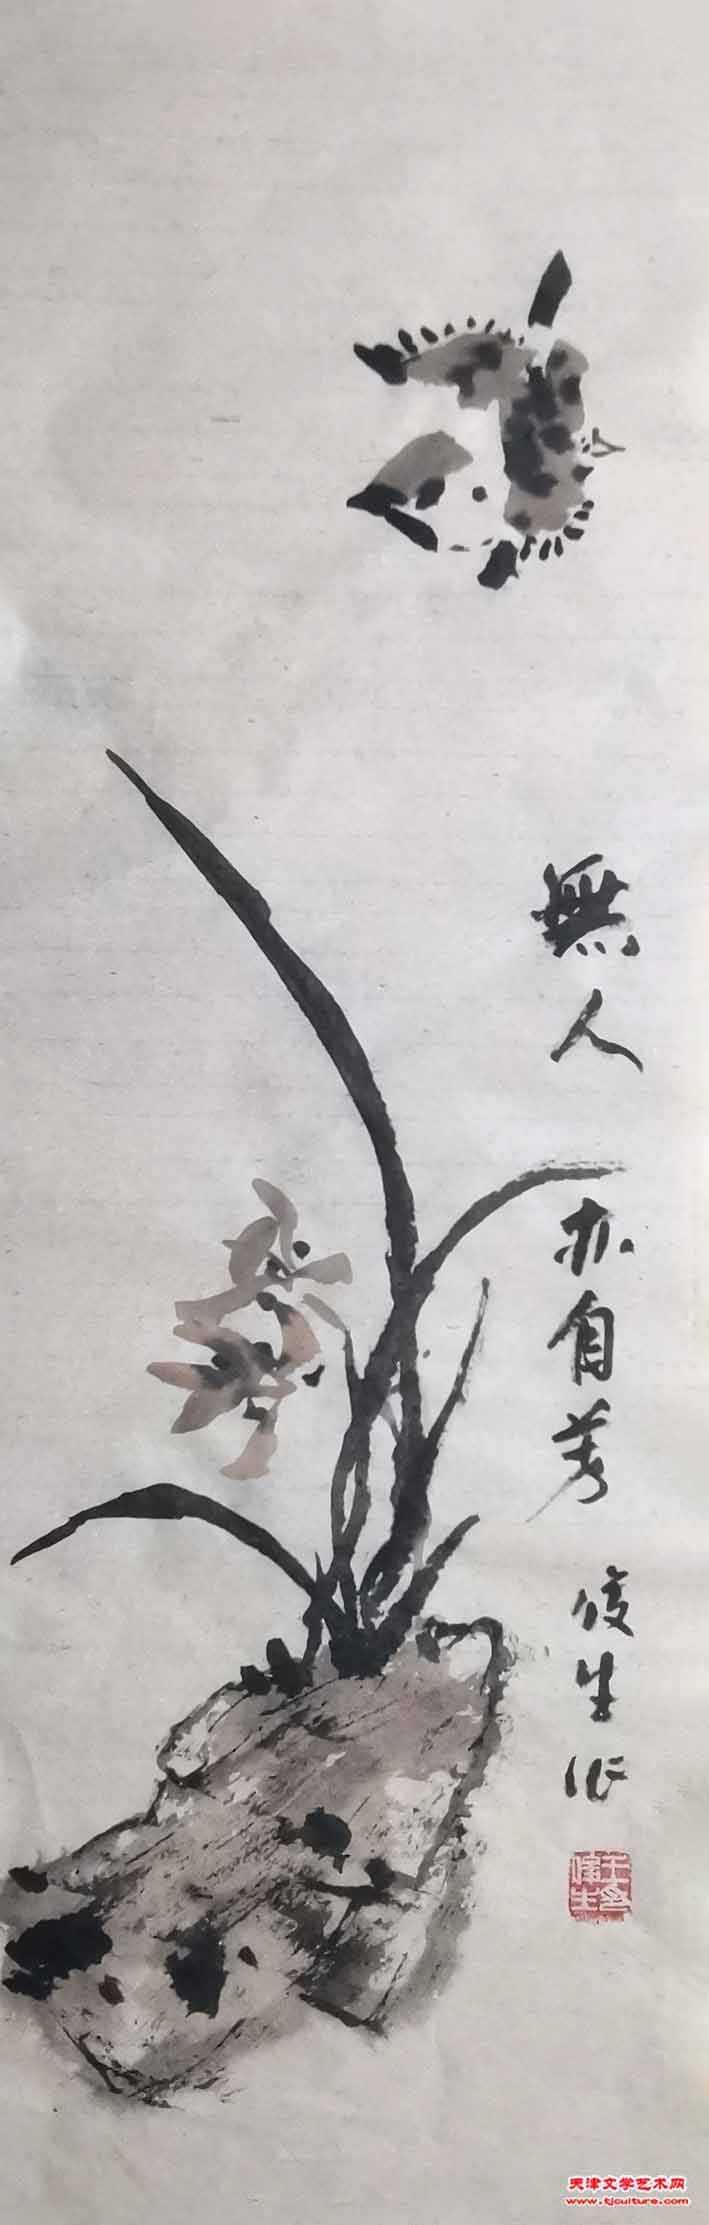 無人亦自芳
俊生作
天津文学艺术网
www.tjculture.com